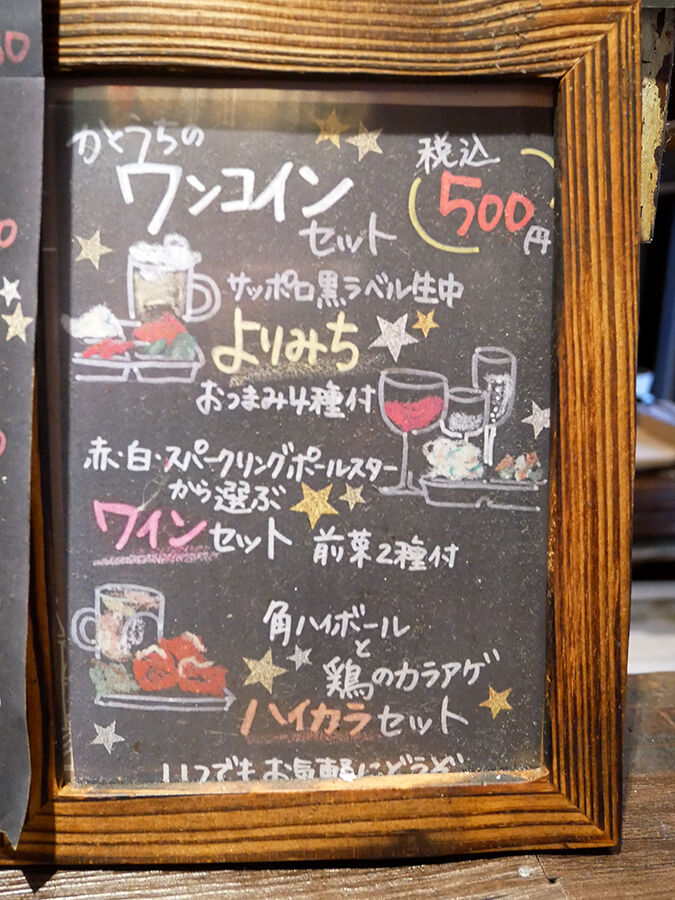 かとうちの
ワンコイン
セット
税込
500円
サッポロ黒ラベル生中
よりみち
おつまみ4種付
赤・白・スパークリングポールスター
から選ぶ
ワインセット 前菜2種付
角ハイボール
と
鶏のカラアゲ
ハイカラセット
いつでもお気軽にどうぞ